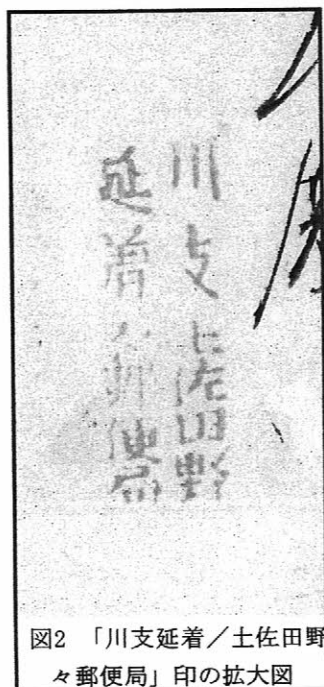 川支土佐田野
延着々郵便局
図2 「川支延着／土佐田野
々郵便局」印の拡大図